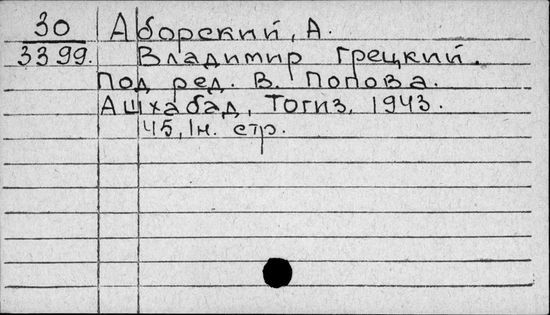 30 Аборский, А.
3399. Владимир Грецкий.
Под ред. В. Попова.
Ашхабад, Тогиз, 1943.
45, 1н. стр.